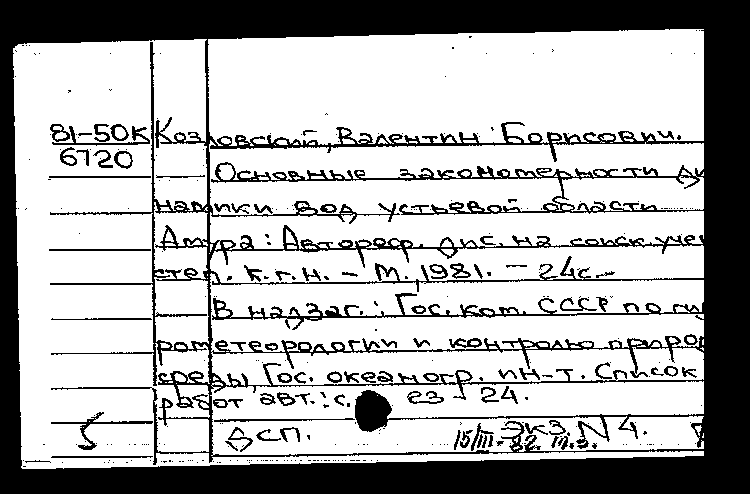 81-50К Козловский, Валентин Борисович.
6720
Основные закономерности ди
намики вод устьевой области
Амура: Автореф. дис. на соиск. учен
степ. к.г.н. – М., 1981. – 24с.–
В надзаг.: Гос. ком. СССР по гид
рометеорологии и контролю природ
среды, Гос. океаногр. ин-т. Список
работ авт.: с. 23 - 24.
ДСП. Экз. N 4.
15/III-82.